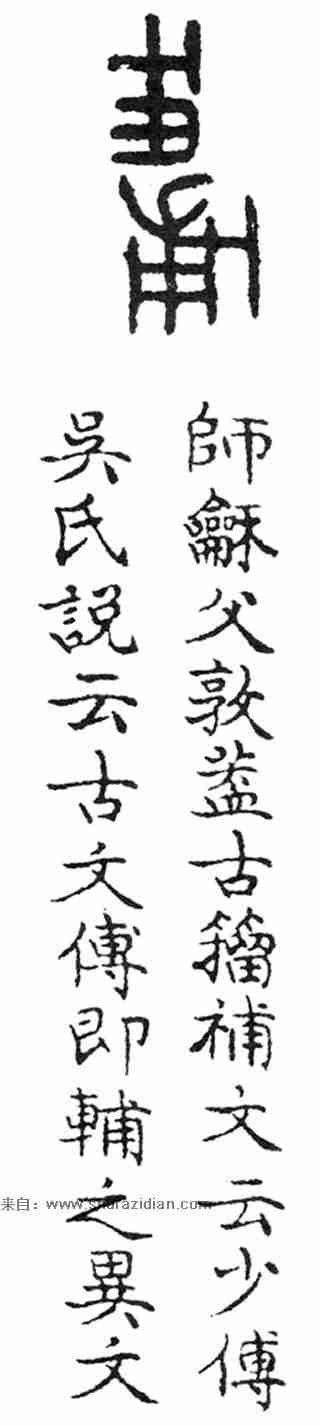 師龢父敦葢古籀補文云少傅
吳氏說云古文傅即輔之異文
来自：www.shufazidian.com